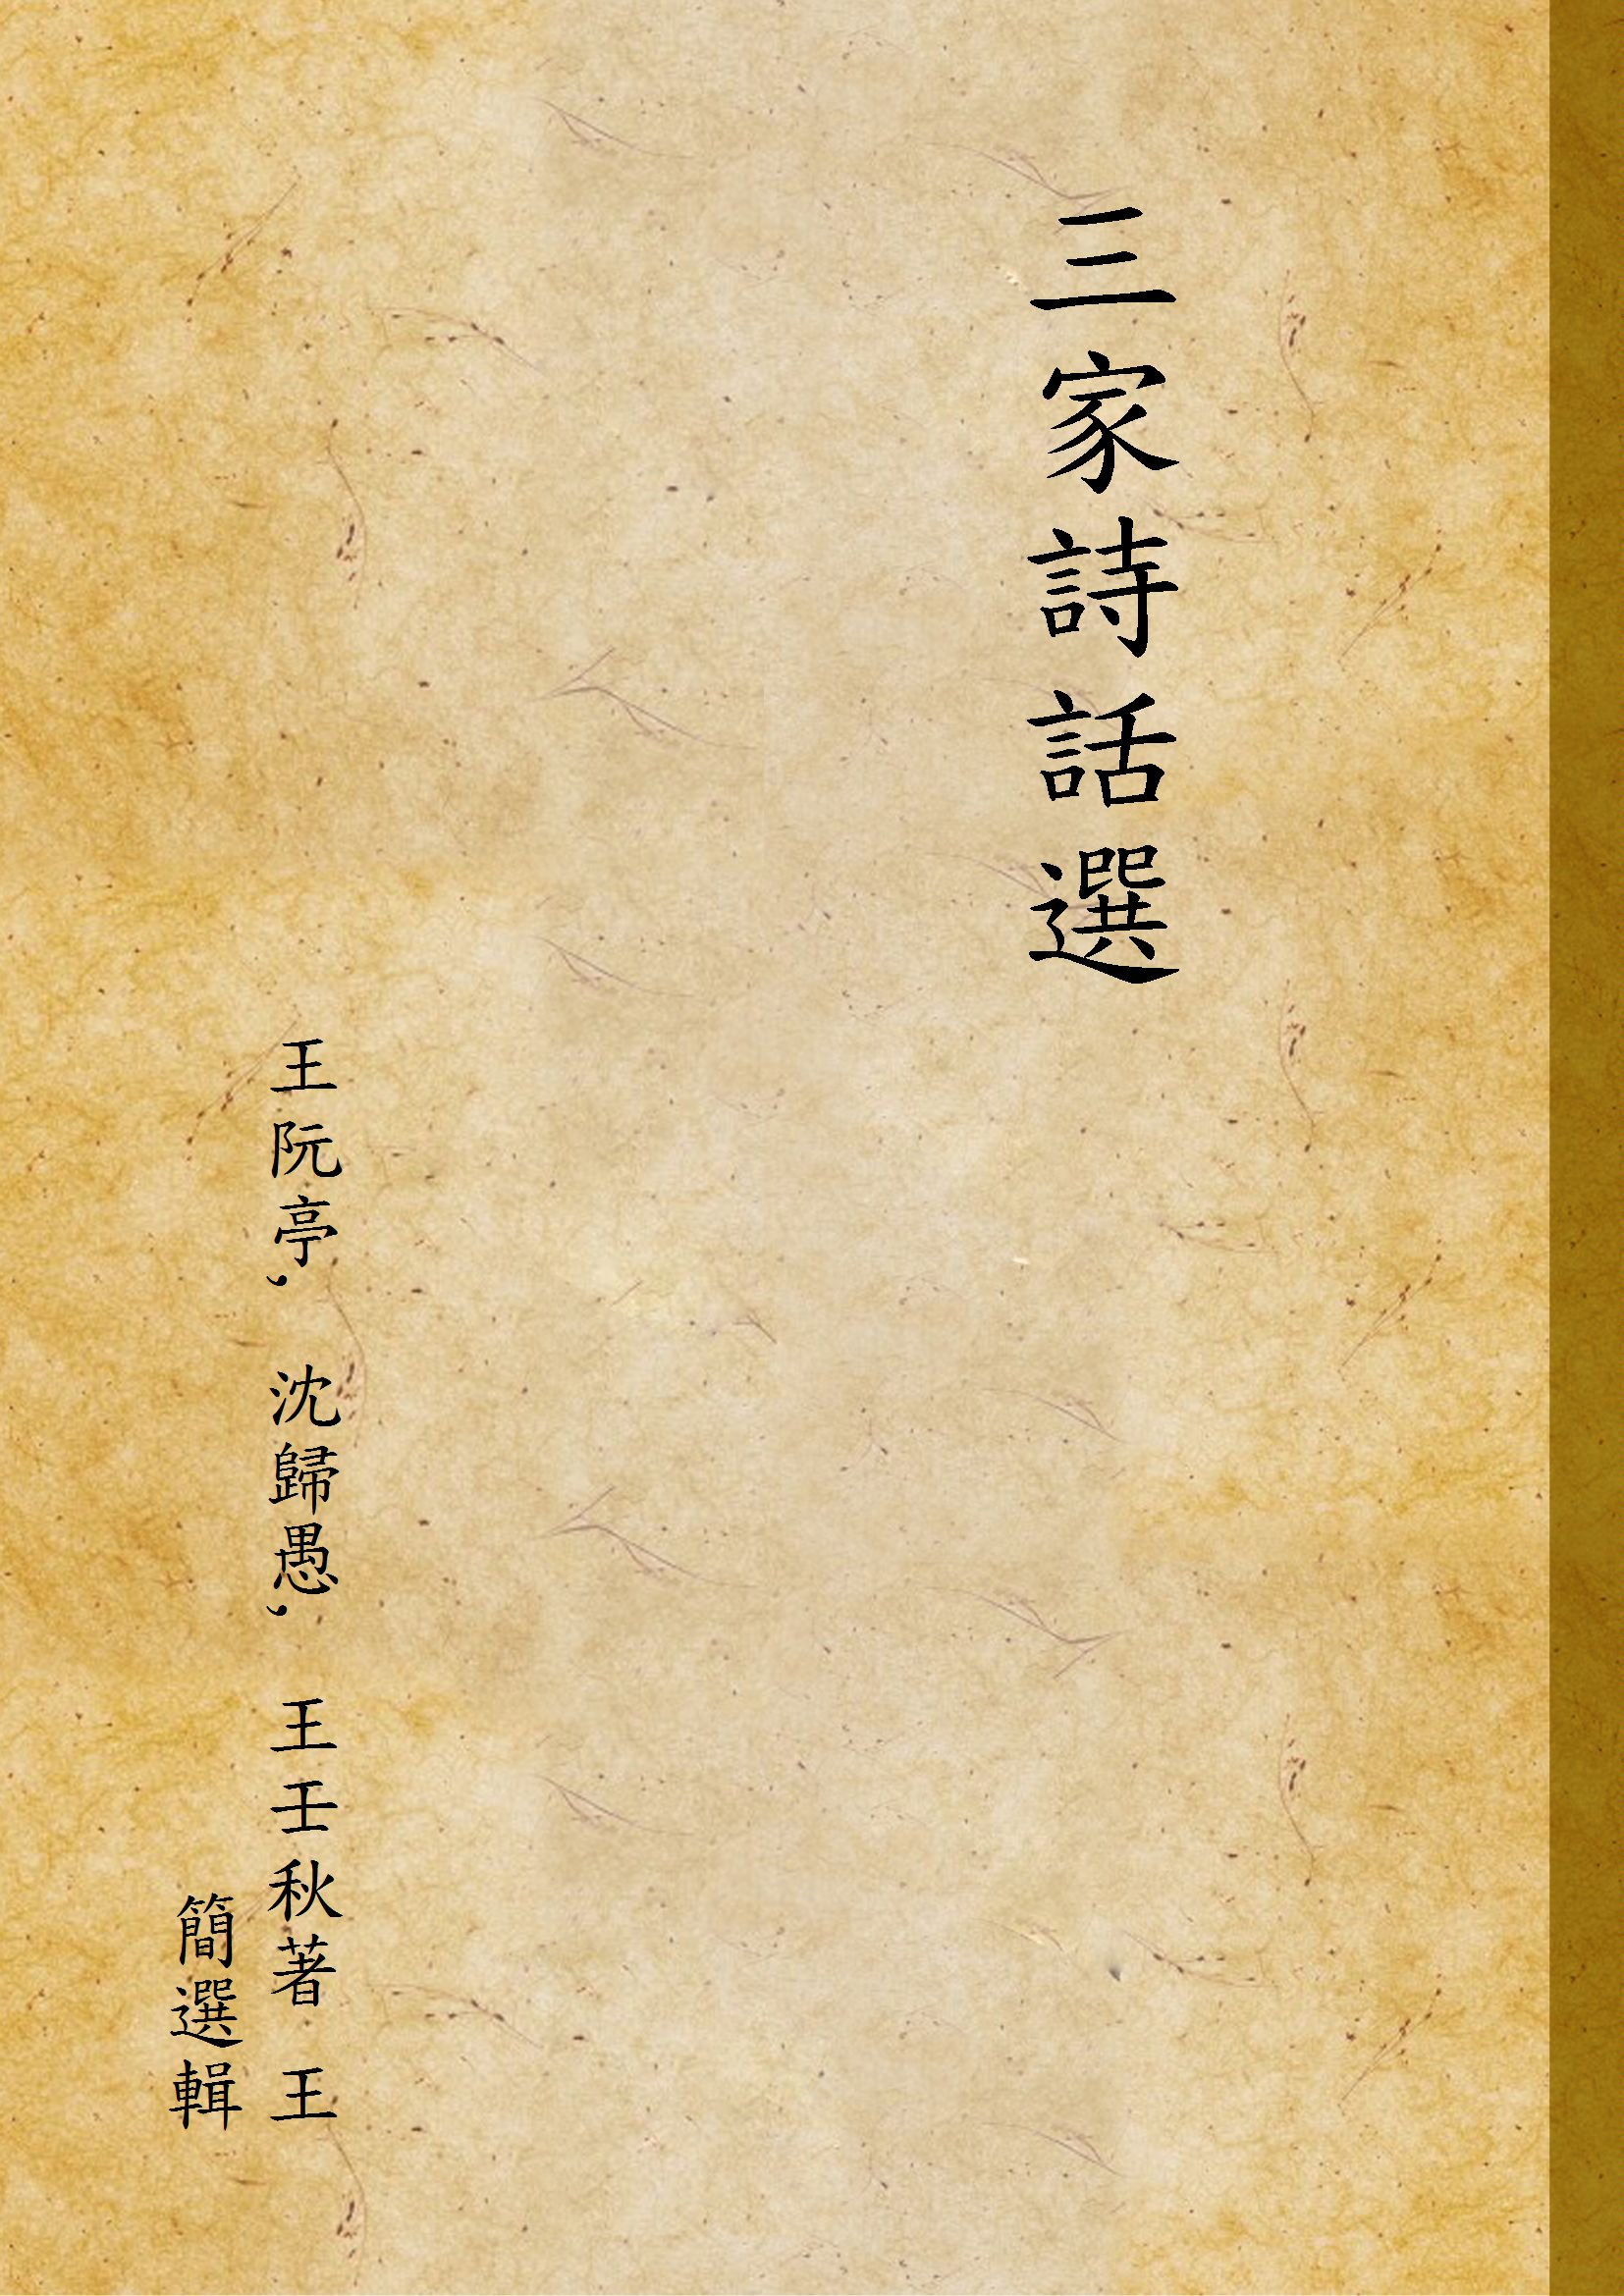 三家詩話選
王阮亭, 沈歸愚, 王壬秋著 王
簡選輯